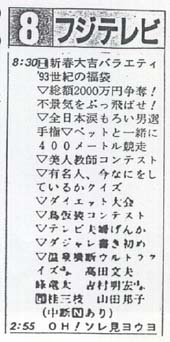 8 フジテレビ
8:30 新春大吉バラエティ
'93世紀の福袋
▽総額2000万円争奪!
不景気をぶっ飛ばせ!
▽全日本涙もろい男選
手権▽ペットと一緒に
400メートル競走
▽美人教師コンテスト
▽有名人、今なにをし
ているかクイズ
▽ダイエット大会
▽鳥仮装コンテスト
▽テレビ夫婦げんか
▽ダジャレ書き初め
▽温泉横断ウルトラク
イズほか 高田文夫
峰竜太 吉村明宏
桂三枝 山田邦子
(中断Nあり)
2:55 OH!ソレ見ヨウヨ